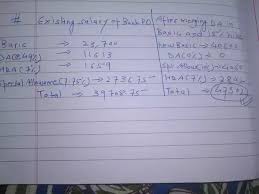 # Existing salary of Bank PO
Basic → 23,700
DA(49%) → 11613
HRA(7%) → 1659
Special Allowance(7.75%) → 2736.75
Total → 39708.75
After merging DA in
Basic and 15% hike
New Basic → 40600
DA(0%) → 0
HRA(7%) → 2842
Total →